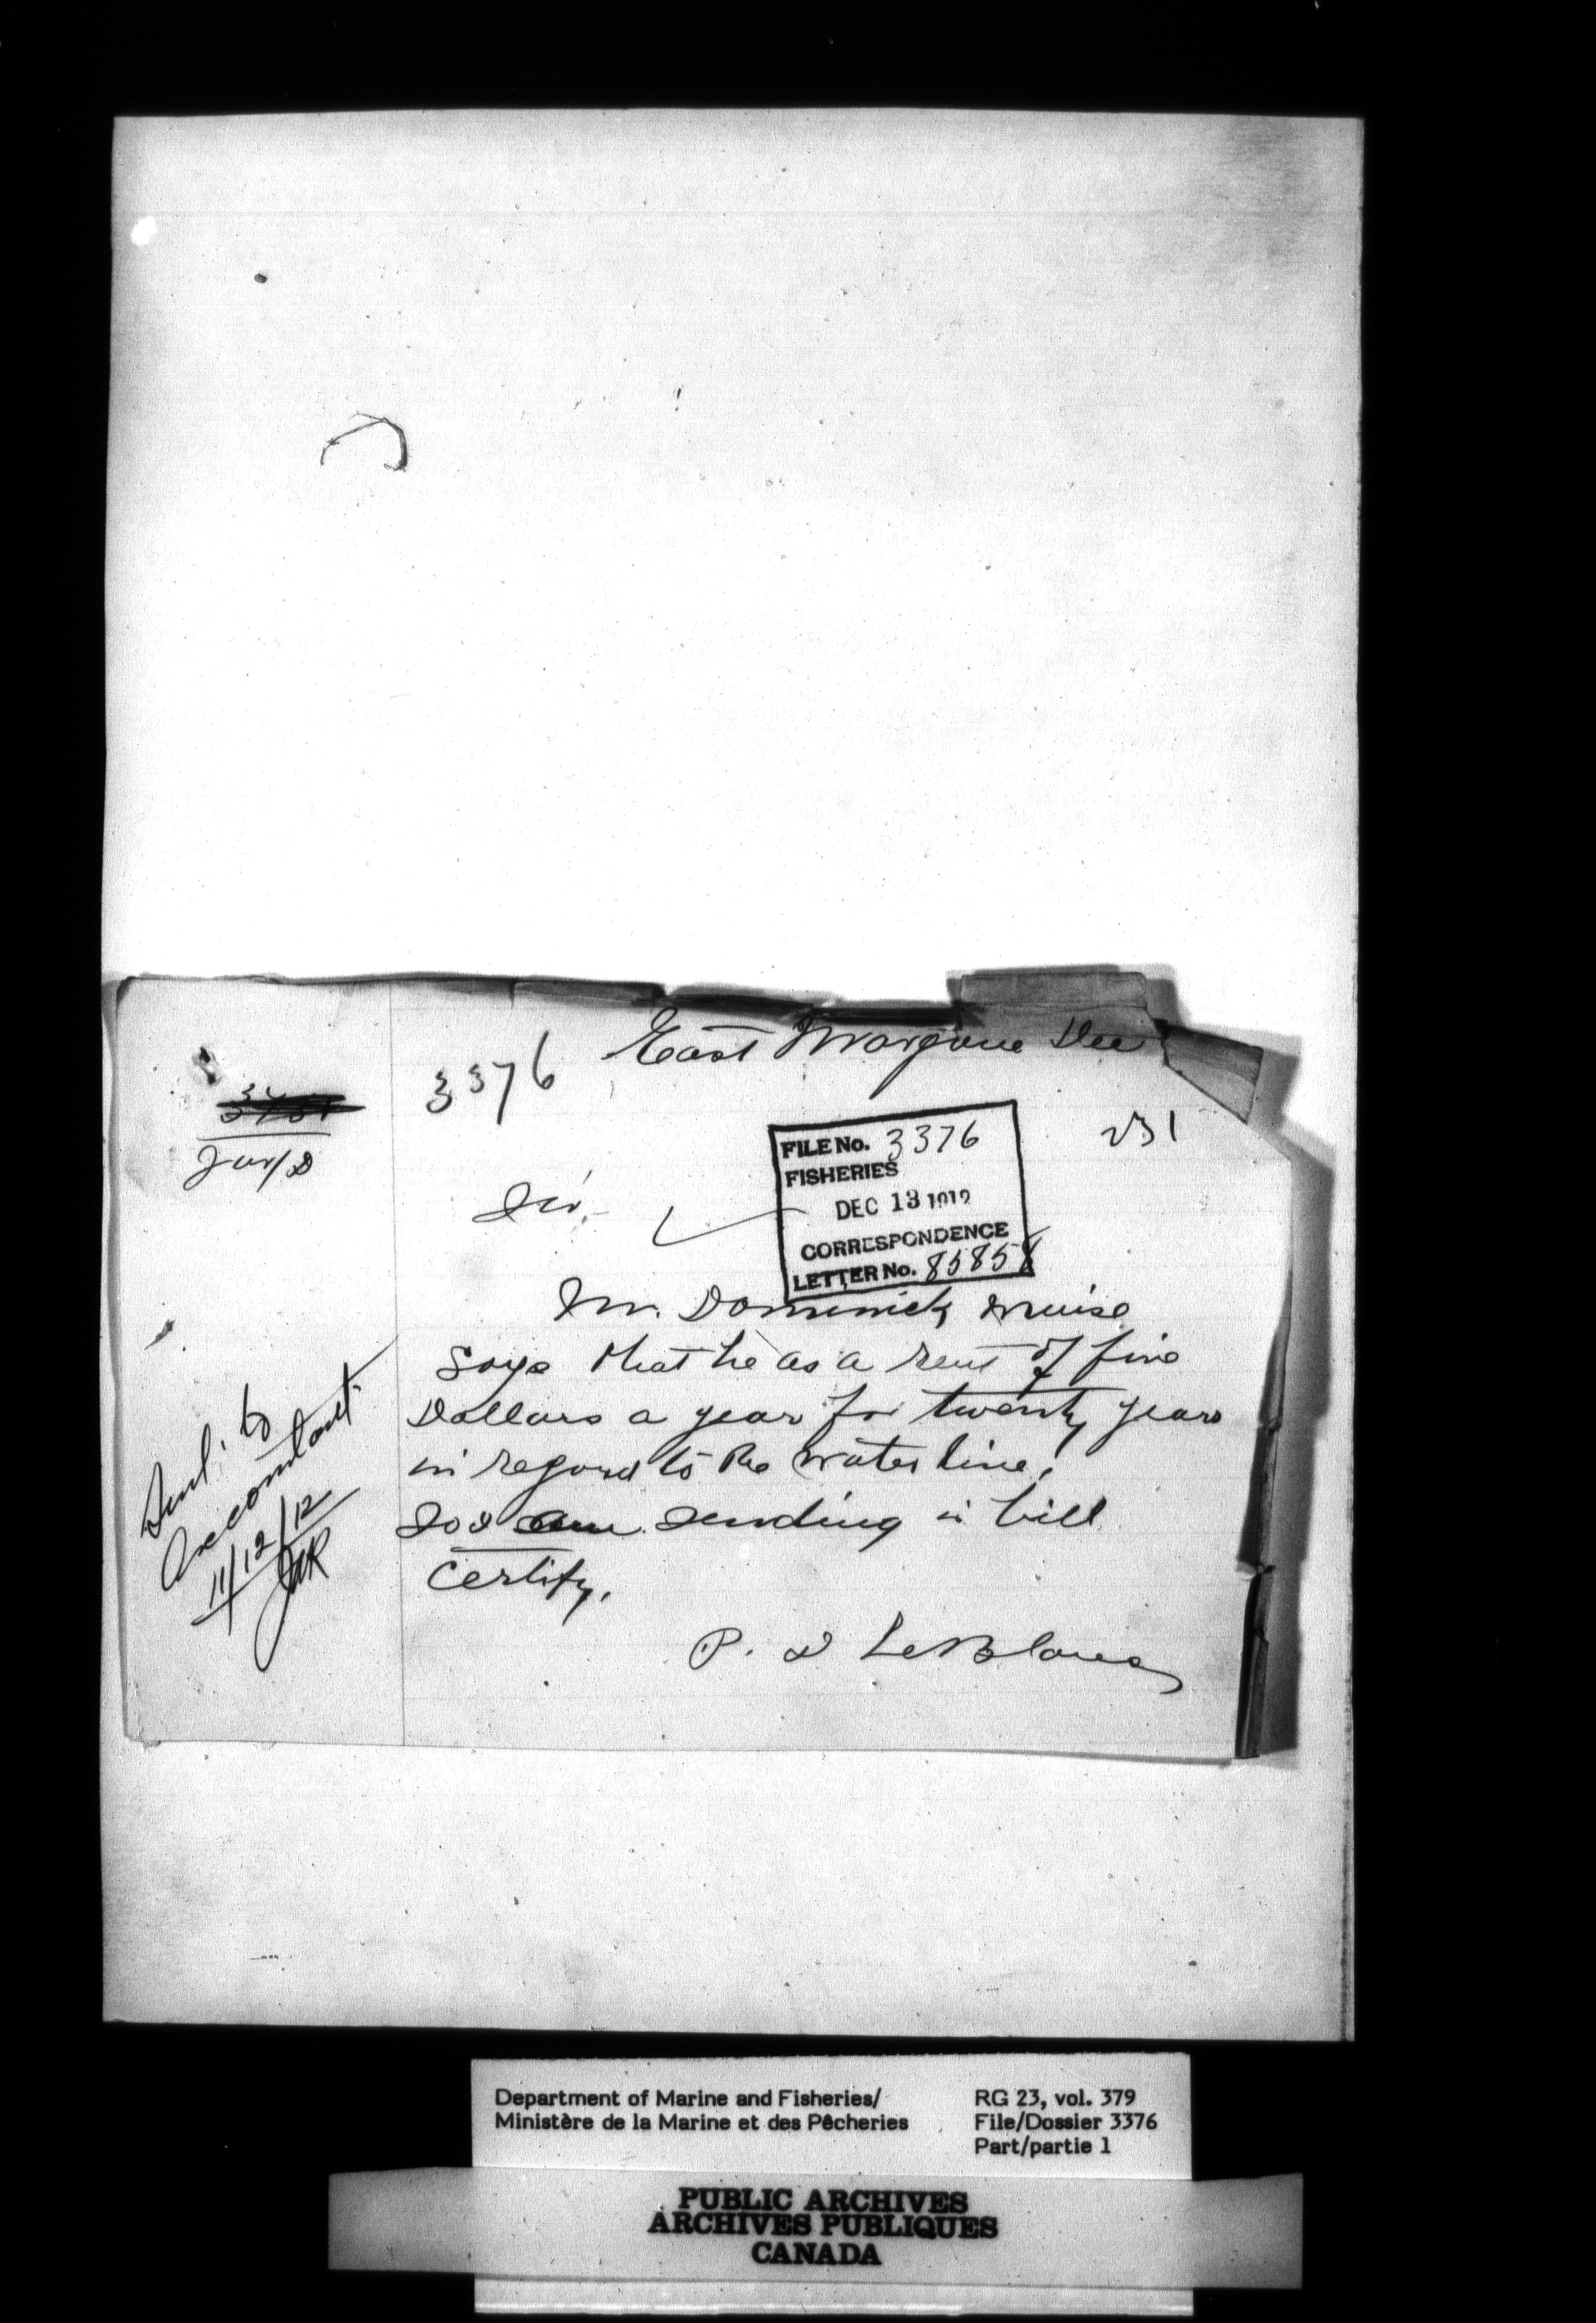 East Margaree Dec
3376
231
FILE No. 3376
FISHERIES
DEC 13 1912
CORRESPONDENCE
LETTER No. 85858
Sir,
Mr. Dominick Muise
Says that he as a rent of five
Dollars a year for twenty years
in regard to the water line,
So I am sending in bill
Certify,
P. D LeBlanc
to
Accountant
11/12/12
Department of Marine and Fisheries/
Ministère de la Marine et des Pêcheries
RG 23, vol. 379
File/Dossier 3376
Part/partie 1
PUBLIC ARCHIVES
ARCHIVES PUBLIQUES
CANADA